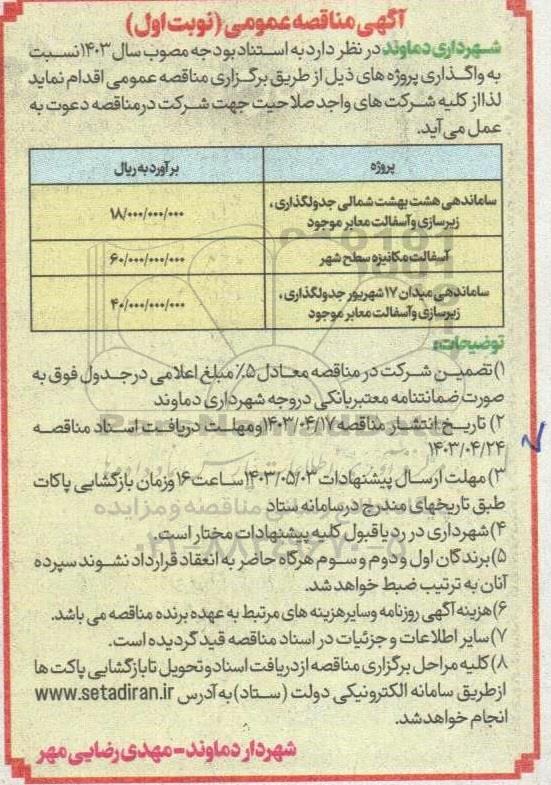 آگهی مناقصه عمومی (نوبت اول)
شهرداری دماوند در نظر دارد به استناد بودجه مصوب سال ۱۴۰۳ نسبت
به واگذاری پروژه های ذیل از طریق برگزاری مناقصه عمومی اقدام نماید
لذا از کلیه شرکت های واجد صلاحیت جهت شرکت در مناقصه دعوت به
عمل می آید.
پروژه
برآورد به ریال
ساماندهی هشت بهشت شمالی جدولگذاری،
زیرسازی و آسفالت معابر موجود
۱۸/۰۰۰/۰۰۰/۰۰۰
آسفالت مکانیزه سطح شهر
۶۰/۰۰۰/۰۰۰/۰۰۰
ساماندهی میدان ۱۷ شهریور جدولگذاری،
زیرسازی و آسفالت معابر موجود
۴۰/۰۰۰/۰۰۰/۰۰۰
توضیحات:
۱) تضمین شرکت در مناقصه معادل ۵٪ مبلغ اعلامی در جدول فوق به
صورت ضمانتنامه معتبر بانکی در وجه شهرداری دماوند
۲) تاریخ انتشار مناقصه ۱۴۰۳/۰۴/۱۷ و مهلت دریافت اسناد مناقصه
۱۴۰۳/۰۴/۲۴
۳) مهلت ارسال پیشنهادات ۱۴۰۳/۰۵/۰۳ ساعت ۱۶ وزمان بازگشایی پاکات
طبق تاریخهای مندرج در سامانه ستاد
۴) شهرداری در رد یا قبول کلیه پیشنهادات مختار است.
۵) برندگان اول و دوم و سوم هرگاه حاضر به انعقاد قرارداد نشوند سپرده
آنان به ترتیب ضبط خواهد شد.
۶) هزینه آگهی روزنامه و سایر هزینه های مرتبط به عهده برنده مناقصه می باشد.
۷) سایر اطلاعات و جزئیات در اسناد مناقصه قید گردیده است.
۸) کلیه مراحل برگزاری مناقصه از دریافت اسناد و تحویل تا بازگشایی پاکت ها
از طریق سامانه الکترونیکی دولت (ستاد) به آدرس www.setadiran.ir
انجام خواهد شد.
شهردار دماوند - مهدی رضایی مهر